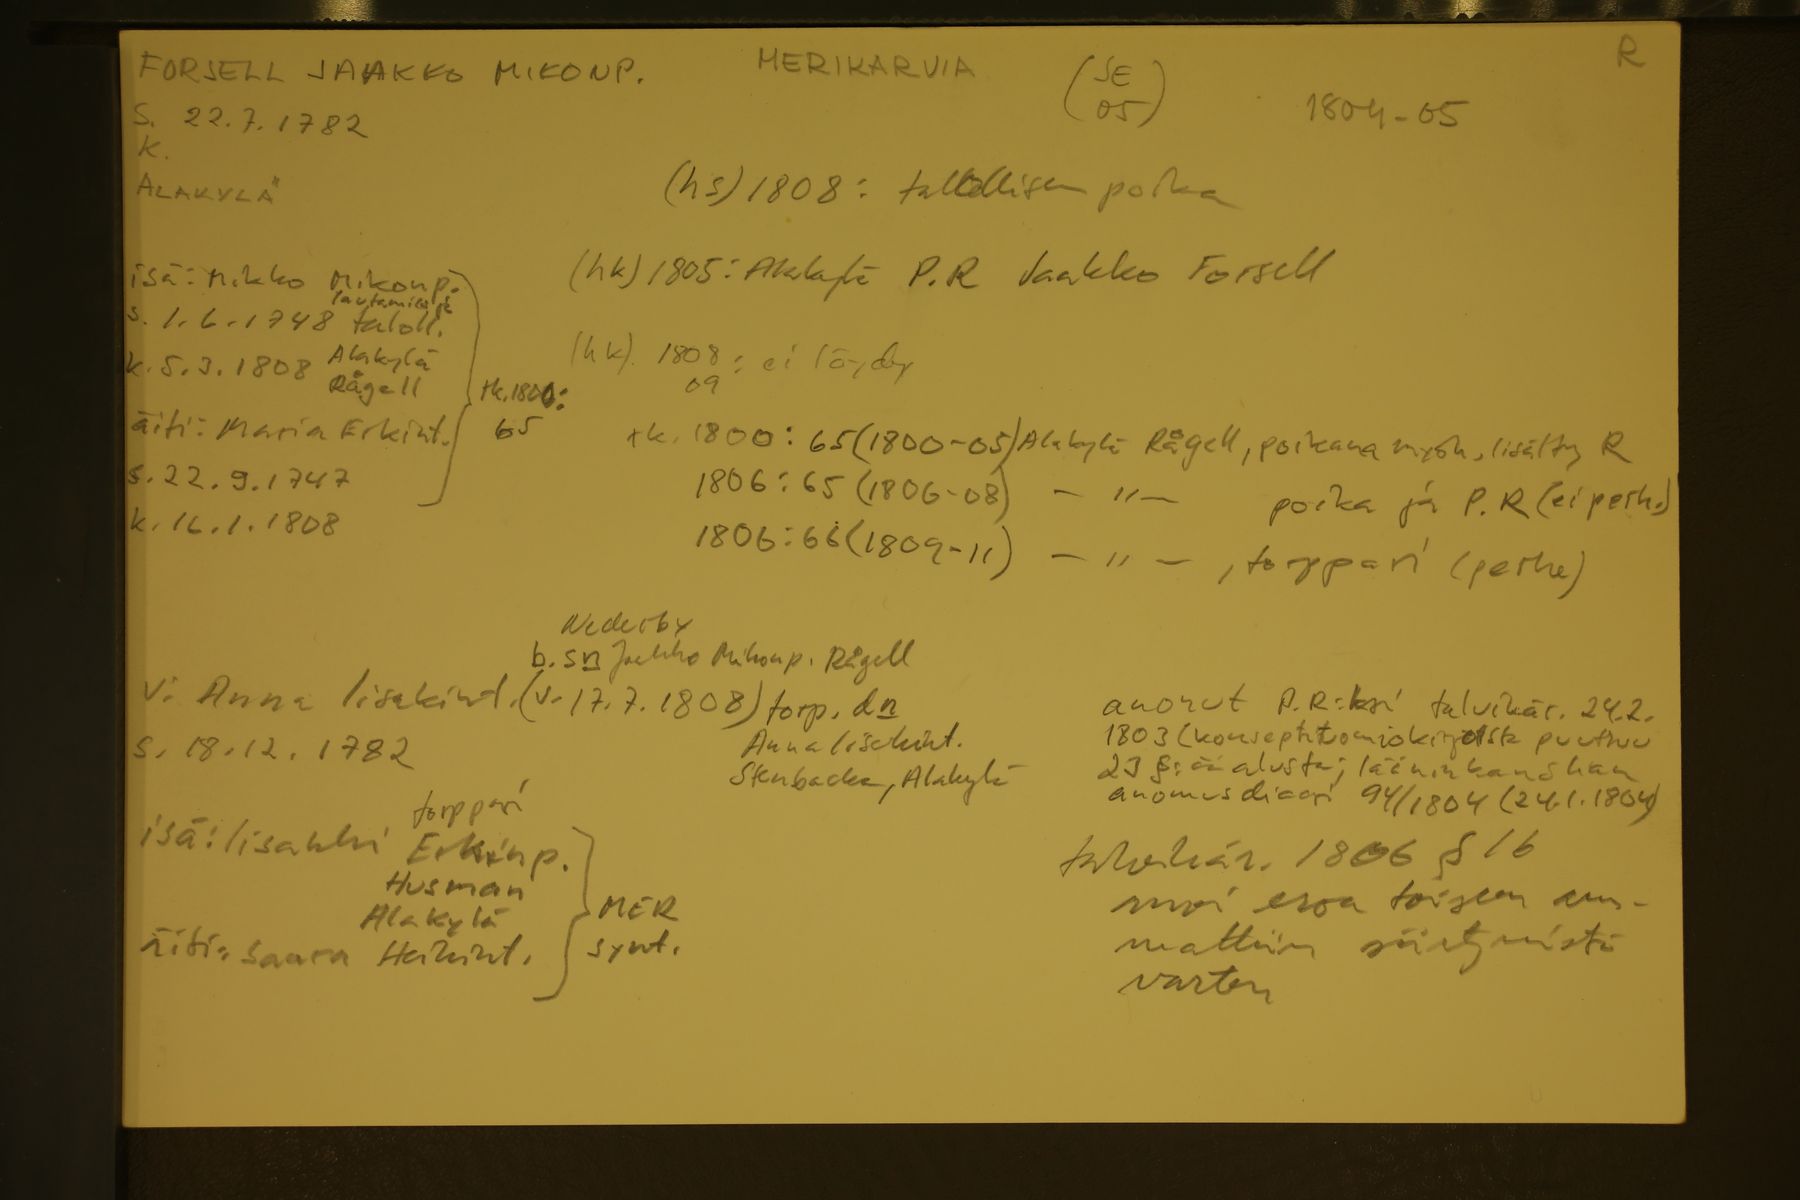 FORSELL JAAKKO MIKONP.
MERIKARVIA
(SE
05)
1804-05
R
S. 22.7.1782
K.
ALAKYLÄ
(hs) 1808: talollisen poika
(hk) 1805: Alakylä P.R Jaakko Forsell
(hk). 1808
09 : ei löydy
isä: Mikko Mikonp.
lautamies ja
s. 1.6.1748 taloll.
k. 5.3.1808 Alakylä
Rågell
äiti: Maria Erkint.
s. 22.9.1747
k. 16.1.1808
rk. 1800:
65
rk. 1800: 65 (1800-05) Alakylä Rågell, poikana myöh. lisätty R
1806: 65 (1806-08) - " - poika ja P.R (ei perh.)
1806: 66 (1809-11) - " - , torppari (perhe)
Nederby
b. sn Jaakko Mikonp. Rågell
V: Anna Iisakint. (v. 17.7.1808) torp. dn
s. 18.12.1782
Anna Iisakint.
Stenbacka, Alakylä
torppari
isä: Iisakki Erkinp.
Husman
Alakylä
äiti: Saara Heikint.
MER
synt.
anonut P.R:ksi talvikär. 24.2.
1803 (konseptituomiokirjoista puuttuu
23 §:ää alusta; lääninkanslian
anomusdiaari 94/1804 (24.1.1804)
talvikär. 1806 § 16
anoi eroa toiseen am-
mattiin siirtymistä
varten